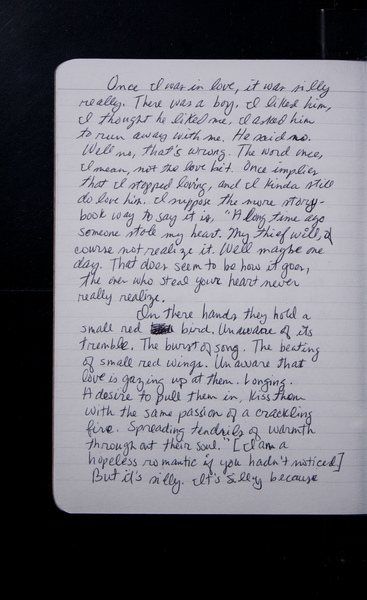 Once I was in love, it was silly
really. There was a boy. I liked him,
I thought he liked me. I asked him
to run away with me. He said no.
Well no, that's wrong. The word once,
I mean, not the love bit. Once implies
that I stopped loving, and I kinda still
do love him. I suppose the more story-
book way to say it is, "A long time ago
someone stole my heart. My thief will, of
course not realize it. Well maybe one
day. That does seem to be how it goes,
the one who steal your heart never
really realize.
In there hands they hold a
small red bird. Unaware of its
tremble. The burst of song. The beating
of small red wings. Unaware that
love is gazing up at them. Longing.
A desire to pull them in, kiss them
with the same passion of a crackling
fire. Spreading tendrils of warmth
throughout their soul." [I am a
hopeless romantic if you hadn't noticed]
But it's silly. It's silly because